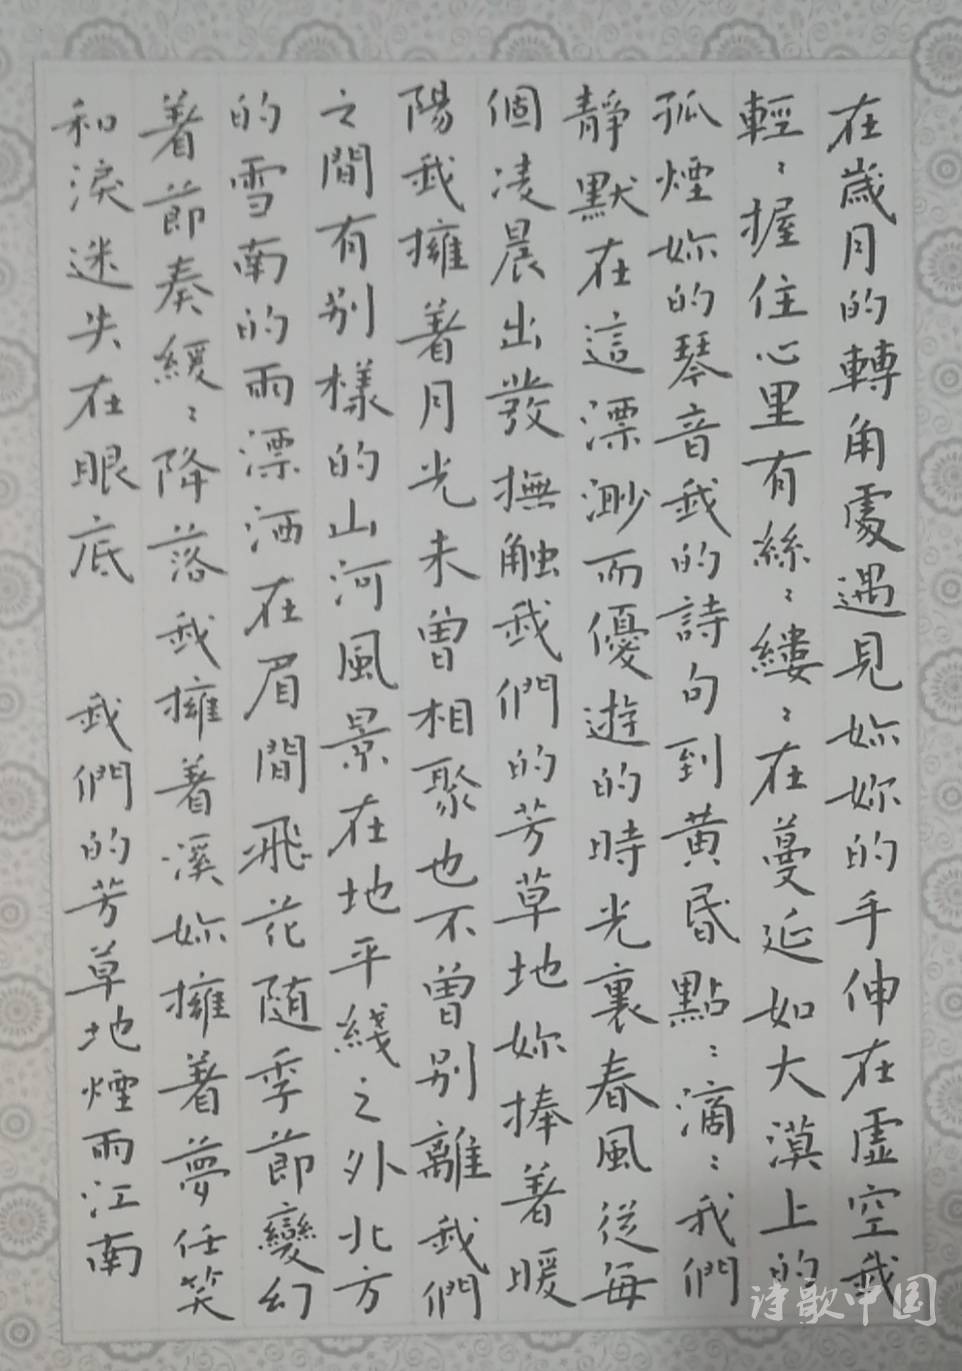 在歲月的轉角處遇見妳妳的手伸在虛空我
輕〻握住心里有絲〻縷〻在蔓延如大漠上的
孤煙妳的琴音我的詩句到黃昏點〻滴〻我們
靜默在這漂渺而優遊的時光裏春風從每
個凌晨出發撫触我們的芳草地妳捧著暖
陽我擁著月光未曾相聚也不曾別離我們
之間有別樣的山河風景在地平綫之外北方
的雪南的雨漂洒在眉間飛花随季節變幻
著節奏緩〻降落我擁著溪妳擁著夢任笑
和淚迷失在眼底 我們的芳草地煙雨江南
诗歌中国